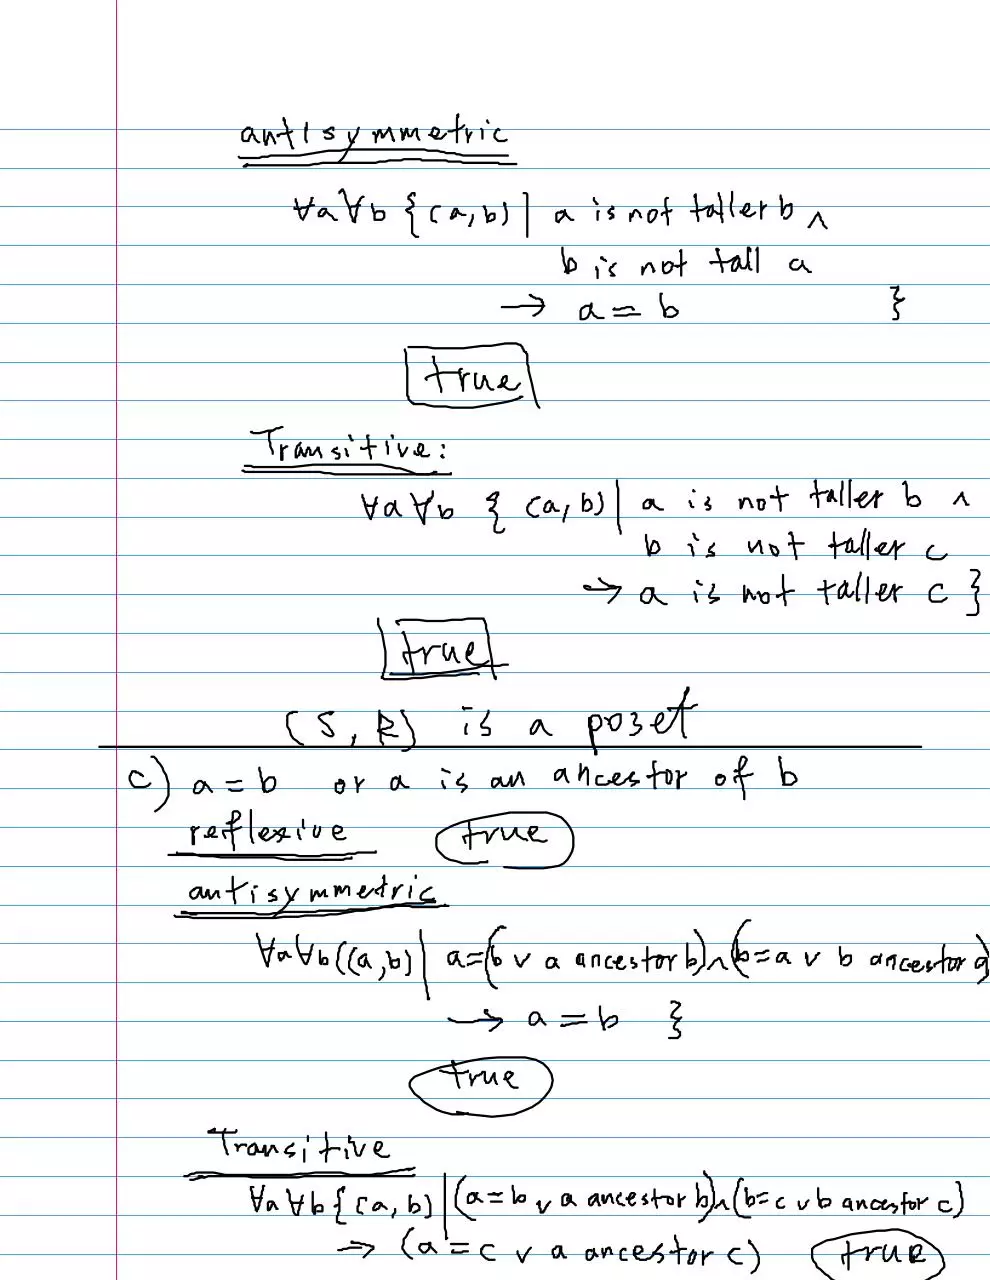 antisymmetric
∀a∀b {(a,b)| a is not taller b ∧
b is not tall a
→ a = b }
true
Transitive:
∀a∀b { (a,b)| a is not taller b ∧
b is not taller c
→ a is not taller c }
true
(S,R) is a poset
c) a = b or a is an ancestor of b
reflexive true
antisymmetric
∀a∀b((a,b)| a=(b ∨ a ancestor b)∧(b=a ∨ b ancestor a)
→ a = b }
true
Transitive
∀a∀b{(a,b)|(a=b ∨ a ancestor b)∧(b=c ∨ b ancestor c)
→ (a = c ∨ a ancestor c) true